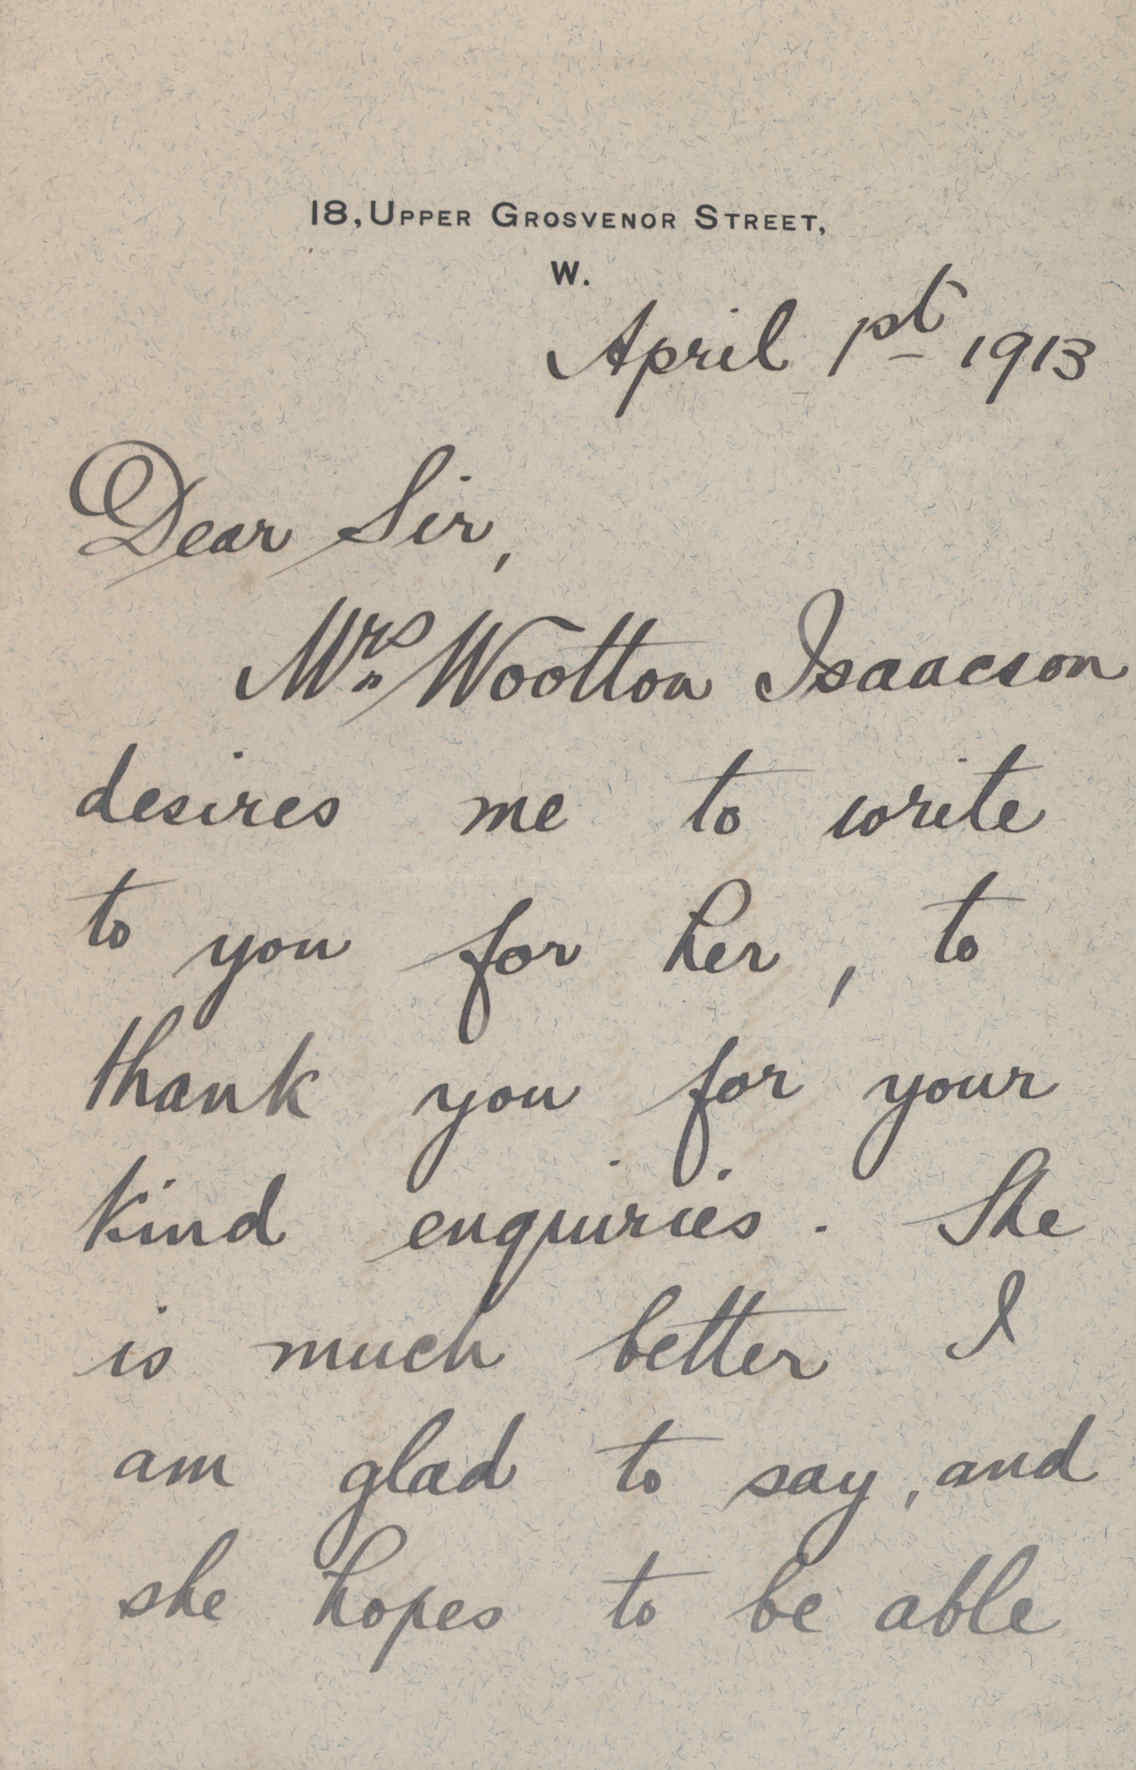 18, UPPER GROSVENOR STREET,
W.
April 1st 1913
Dear Sir,
Mrs Wootton Isaacson
desires me to write
to you for her, to
thank you for your
kind enquiries. She
is much better I
am glad to say, and
she hopes to be able